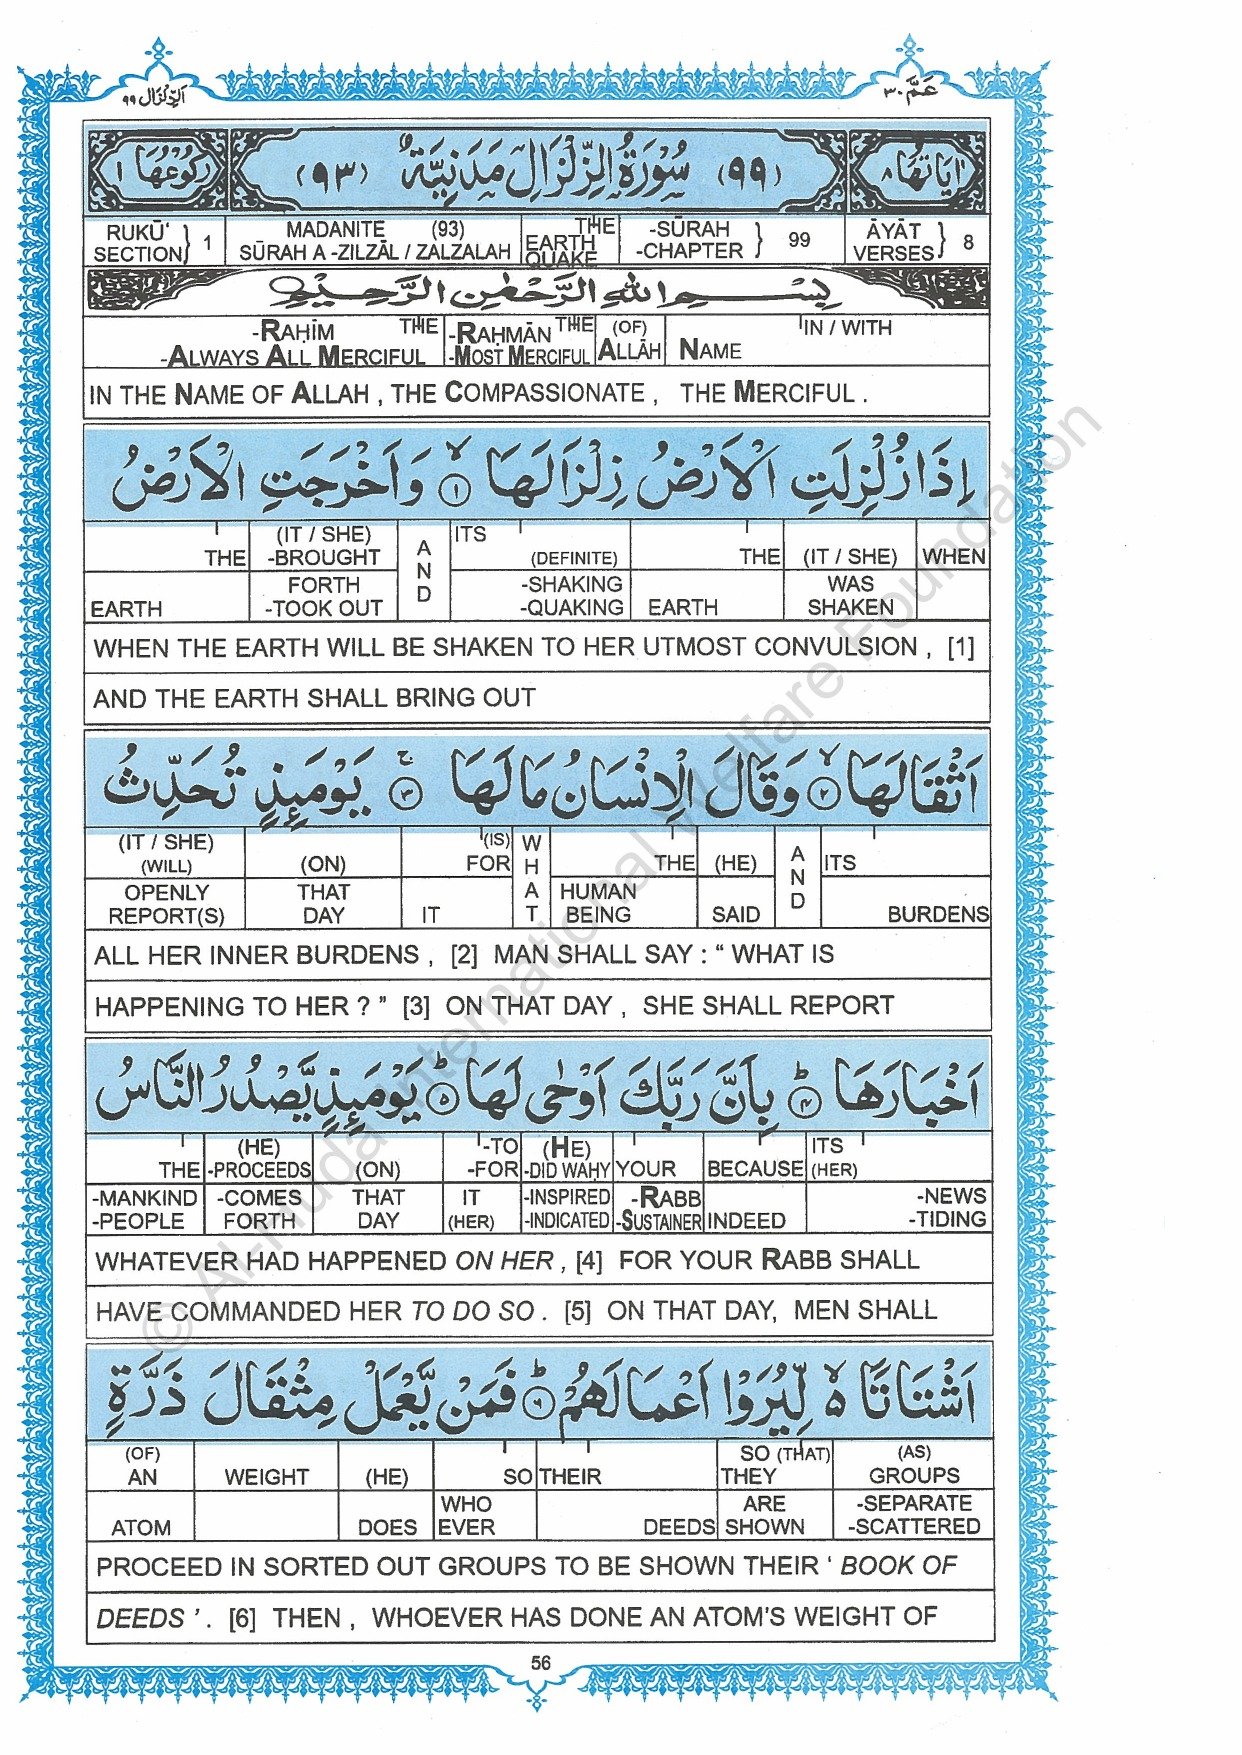 الزلزال ٩٩
عم ٣٠
اٰيَاتُهَا ٨
(٩٩) سُوْرَةُ الزِّلْزَالِ مَدَنِيَّةٌ (٩٣)
رُكُوْعُهَا ١
RUKŪ‘ SECTION} 1
MADANITE (93) THE -SŪRAH
SŪRAH A -ZILZĀL / ZALZALAH EARTH QUAKE -CHAPTER } 99
ĀYĀT VERSES} 8
بِسْمِ اللهِ الرَّحْمٰنِ الرَّحِيْمِ
-RAḤĪM THE -RAḤMĀN THE (OF) IN / WITH
-ALWAYS ALL MERCIFUL -MOST MERCIFUL ALLĀH NAME
IN THE NAME OF ALLAH , THE COMPASSIONATE , THE MERCIFUL .
اِذَا زُلْزِلَتِ الْاَرْضُ زِلْزَالَهَا ۙ ١ وَاَخْرَجَتِ الْاَرْضُ
THE (IT / SHE) -BROUGHT AND ITS (DEFINITE) THE (IT / SHE) WHEN
EARTH FORTH -TOOK OUT -SHAKING -QUAKING EARTH WAS SHAKEN
WHEN THE EARTH WILL BE SHAKEN TO HER UTMOST CONVULSION , [1]
AND THE EARTH SHALL BRING OUT
اَثْقَالَهَا ۙ ٢ وَقَالَ الْاِنْسَانُ مَا لَهَا ۚ ٣ يَوْمَىِٕذٍ تُحَدِّثُ
(IT / SHE) (WILL) (ON) (IS) FOR WHAT THE (HE) AND ITS
OPENLY REPORT(S) THAT DAY IT HUMAN BEING SAID BURDENS
ALL HER INNER BURDENS , [2] MAN SHALL SAY : “ WHAT IS
HAPPENING TO HER ? ” [3] ON THAT DAY , SHE SHALL REPORT
اَخْبَارَهَا ؕ ٤ بِاَنَّ رَبَّكَ اَوْحٰى لَهَا ؕ ٥ يَوْمَىِٕذٍ يَّصْدُرُ النَّاسُ
THE (HE) -PROCEEDS (ON) -TO -FOR (HE) -DID WAḤY YOUR BECAUSE ITS (HER)
-MANKIND -PEOPLE -COMES FORTH THAT DAY IT (HER) -INSPIRED -INDICATED -RABB -SUSTAINER INDEED -NEWS -TIDING
WHATEVER HAD HAPPENED ON HER , [4] FOR YOUR RABB SHALL
HAVE COMMANDED HER TO DO SO . [5] ON THAT DAY, MEN SHALL
اَشْتَاتًا ۙ۬ لِّيُرَوْا اَعْمَالَهُمْ ؕ ٦ فَمَنْ يَّعْمَلْ مِثْقَالَ ذَرَّةٍ
(OF) AN WEIGHT (HE) SO THEIR SO (THAT) THEY (AS) GROUPS
ATOM DOES WHO EVER DEEDS ARE SHOWN -SEPARATE -SCATTERED
PROCEED IN SORTED OUT GROUPS TO BE SHOWN THEIR ‘ BOOK OF
DEEDS ’ . [6] THEN , WHOEVER HAS DONE AN ATOM’S WEIGHT OF
56
© Al-Huda International Welfare Foundation